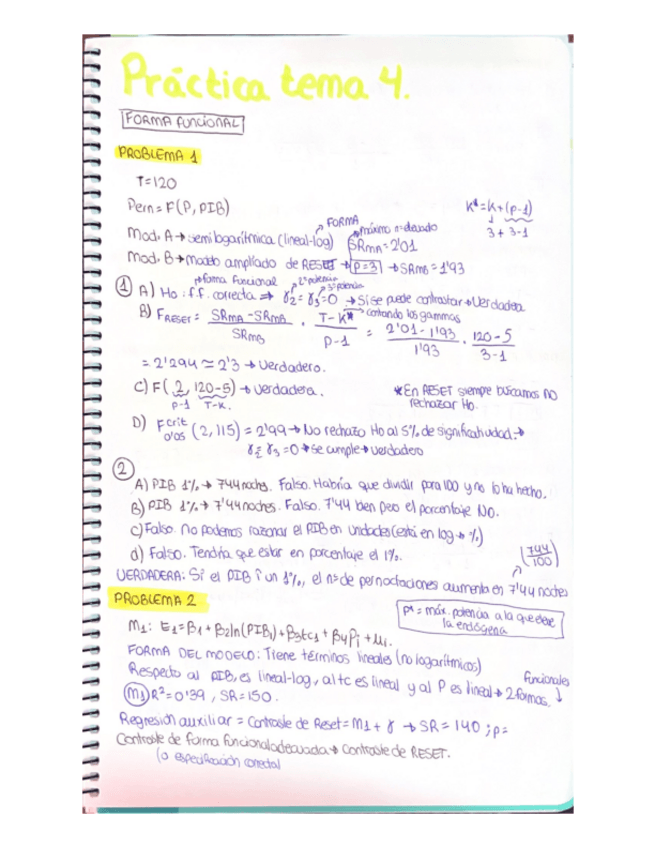 Práctica tema 4.
FORMA FUNCIONAL
PROBLEMA 1
T=120
Pern=F(P, PIB)
K*=K+(p-1)
3+3-1
FORMA
Mod. A → semilogarítmica (lineal-log)
máximo nº elevado
SRMA=2'01
Mod. B → modelo ampliado de RESET → p=3 → SRMB=1'93
forma funcional
2ª potencia
3ª potencia
① A) Ho: f.f. correcta ⇒ γ2=γ3=0 → Sí se puede contrastar → Verdadera
B) FRESET = (SRMA-SRMB)/SRMB · (T-K*)/(p-1) = (2'01-1'93)/1'93 · (120-5)/(3-1)
contando los gammas
= 2'294 ≃ 2'3 → Verdadero.
C) F(2, 120-5) → Verdadera.
p-1 T-K.
*En RESET siempre buscamos NO
rechazar Ho.
D) Fcrit 0'05 (2,115) = 2'99 → No rechazo Ho al 5% de significatividad. →
γ2=γ3=0 → Se cumple → Verdadero
②
A) PIB 1% → 744 noches. Falso. Habría que dividir para 100 y no lo ha hecho.
B) PIB 1% → 7'44 noches. Falso. 7'44 bien pero el porcentaje NO.
C) Falso. No podemos razonar el PIB en unidades (está en log → %)
d) Falso. Tendría que estar en porcentaje el 1%.
(744/100)
VERDADERA: Si el PIB ↑ un 1%, el nº de pernoctaciones aumenta en 7'44 noches
PROBLEMA 2
p* = máx. potencia a la que eleve
la endógena
M1: Et=β1+β2ln(PIBi)+β3tci+β4Pi+ui.
FORMA DEL MODELO: Tiene términos lineales (no logarítmicos)
Respecto al PIB, es lineal-log, al tc es lineal y al P es lineal → 2 formas.
funcionales
M1) R²=0'39, SR=150.
Regresión auxiliar = Contraste de Reset = M1+γ → SR=140; p=
Contraste de forma funcional adecuada → Contraste de RESET.
(o especificación correcta)